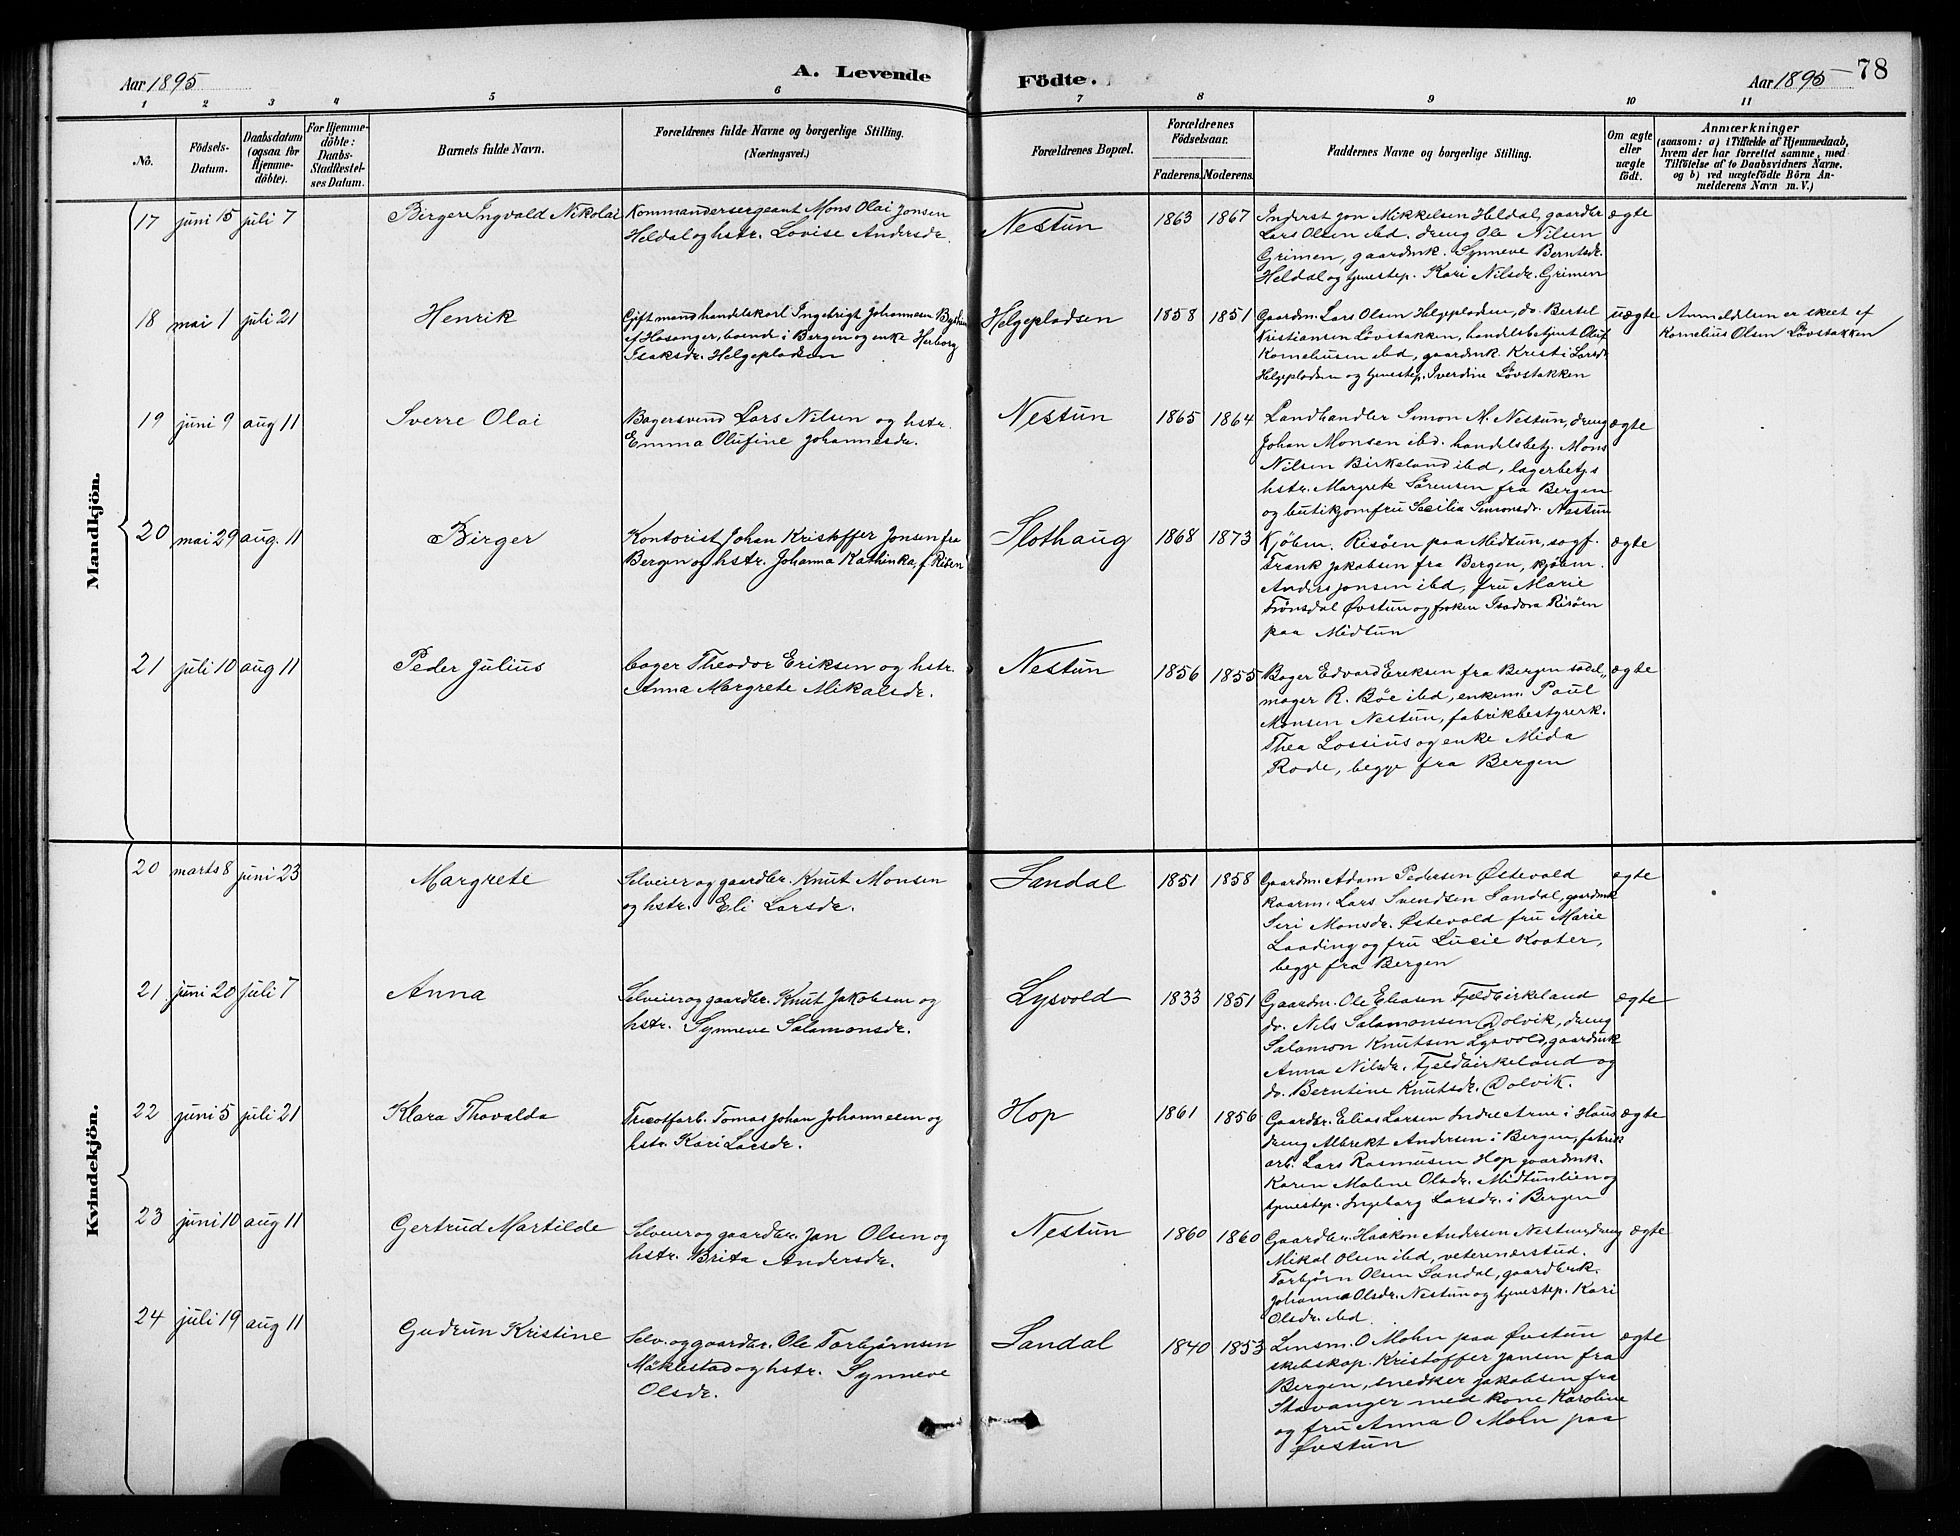 Aar 1895
A. Levende
Födte.
Aar 1895
78
1 2 3 4 5 6 7 8 9 10 11
No.
Födsels-
Datum.
Daabsdatum
(ogsaa for
Hjemme-
döbte).
For Hjemme-
döbte:
Daabs-
Stadfæstel-
ses Datum.
Barnets fulde Navn.
Forældrenes fulde Navne og borgerlige Stilling.
(Næringsvei.)
Forældrenes Bopæl.
Forældrenes
Födselsaar.
Faderens. Moderens.
Faddernes Navne og borgerlige Stilling.
Om ægte
eller
uægte
födt.
Anmærkninger
(saasom: a) i Tilfælde af Hjemmedaab,
hvem der har forrettet samme, med
Tilföielse af to Daabsvidners Navne.
og b) ved uægtefödte Börn An-
melderens Navn m. V.)
Mandkjön.
17 juni 15 juli 7 Birger Ingvald Nikolai
Kommandersergeant Mons Olai Jonsen
Heldal og hstr. Lovise Andersdr.
Nestun 1863 1867
Inderst Jon Mikkelsen Heldal, gaardbr
Lars Olsen ibd. dreng Ole Nilsen
Grimen, gaardmk. Synneve Berntsdr.
Heldal og tjenestep. Kari Nilsdr. Grimen
ægte
18 mai 1 juli 21 Henrik
Gift mand handelskarl Ingebrigt Johannesen
af Hosanger, boende i Bergen og enke Herborg
Isaksdr. Helgepladsen
Helgepladsen 1858 1851
Gaardm. Lars Olsen Helgepladsen, do. Bertel
Kristiansen Løvstakken, handelsbetjent Oluf
Korneliusen ibd, gaardmk. Kristi Larsdr
Helgepladsen og tjenestep. Iverdine Løvstakken
uægte
Anmeldelsen er skeet af
Kornelius Olsen Løvstakken
19 juni 9 aug 11 Sverre Olai
Bagersvend Lars Nilsen og hstr.
Emma Olufine Johannesdr.
Nestun 1865 1864
Landhandler Simon M. Nestun, dreng
Johan Monsen ibd. handelsbetj. Mons
Nilsen Birkeland ibd, lagerbetj.s
hstr. Margrete Sørensen fra Bergen
og butikjomfru Secilia Simonsdr. Nestun
ægte
20 mai 29 aug. 11 Birger
Kontorist Johan Kristoffer Jonsen fra
Bergen og hstr. Johanna Kathinka, f. Risøen
Slothaug 1868 1873
Kjøbm. Risøen paa Midtun, sogf.
Frank Jakobsen fra Bergen, kjøbm.
Anders Jonsen ibd, fru Marie
Frønsdal Øvstun og frøken Isadora Risøen
paa Midtun
ægte
21 juli 10 aug 11 Peder Julius
bager Theodor Eriksen og hstr.
Anna Margrete Mikalsdr.
Nestun 1856 1855
Bager Edvard Eriksen fra Bergen sadel-
mager R. Bøe ibd, enkem. Paul
Monsen Nestun, fabrikbestyrerk.
Thea Lossius og enke Mida
Rode, begge fra Bergen
ægte
Kvindekjön.
20 marts 8 juni 23 Margrete
Selveier og gaardbr. Knut Monsen
og hstr. Eli Larsdr.
Sandal 1851 1858
Gaardm. Adam Pedersen Østevold
kaarm. Lars Svendsen Sandal, gaardmk
Siri Monsdr. Østevold fru Marie
Laading og fru Lucie Koater,
begge fra Bergen
ægte
21 juni 20 juli 7 Anna
Selveier og gaardbr. Knut Jakobsen og
hstr. Synneve Salamonsdr.
Lysvold 1833 1851
Gaardm. Ole Eliasen Fjeldbirkeland
do. Nils Salamonsen Dolvik, dreng
Salamon Knutsen Lysvold, gaardmk
Anna Nilsdr. Fjeldbirkeland og
do. Berntine Knutsdr. Dolvik.
ægte
22 juni 5 juli 21 Klara Thovalda
Tricotfarb. Tomas Johan Johannesen og
hstr. Kari Larsdr.
Hop 1861 1856
Gaardbr. Elias Larsen Indre Arne i Haus
dreng Albrekt Andersen i Bergen, fabrik
arb. Lars Rasmusen Hop gaardmk.
Karen Malene Olsdr. Midtunlien og
tjenestep. Ingeborg Larsdr. i Bergen
ægte
23 juni 10 aug 11 Gertrud Martilde
Selveier og gaardbr. Jan Olsen og
hstr. Brita Andersdr.
Nestun 1860 1860
Gaardbr. Haakon Andersen Nestun, dreng
Mikal Olsen ibd, veterinærstud.
Torbjørn Olsen Sandal, gaardbrk.
Johanna Olsdr. Nestun og tjenestep. Kari
Olsdr. ibd.
ægte
24 juli 19 aug 11 Gudrun Kristine
Selv. og gaardbr. Ole Torbjørnsen
Møklestad og hstr. Synneve
Olsdr.
Sandal 1840 1853
Lensm. O Mohn paa Øvstun
skibskap. Kristoffer Jansen fra
Bergen, snedker Jakobsen fra
Stavanger med kone Karoline
og fru Anna O Mohn paa
Øvstun
ægte